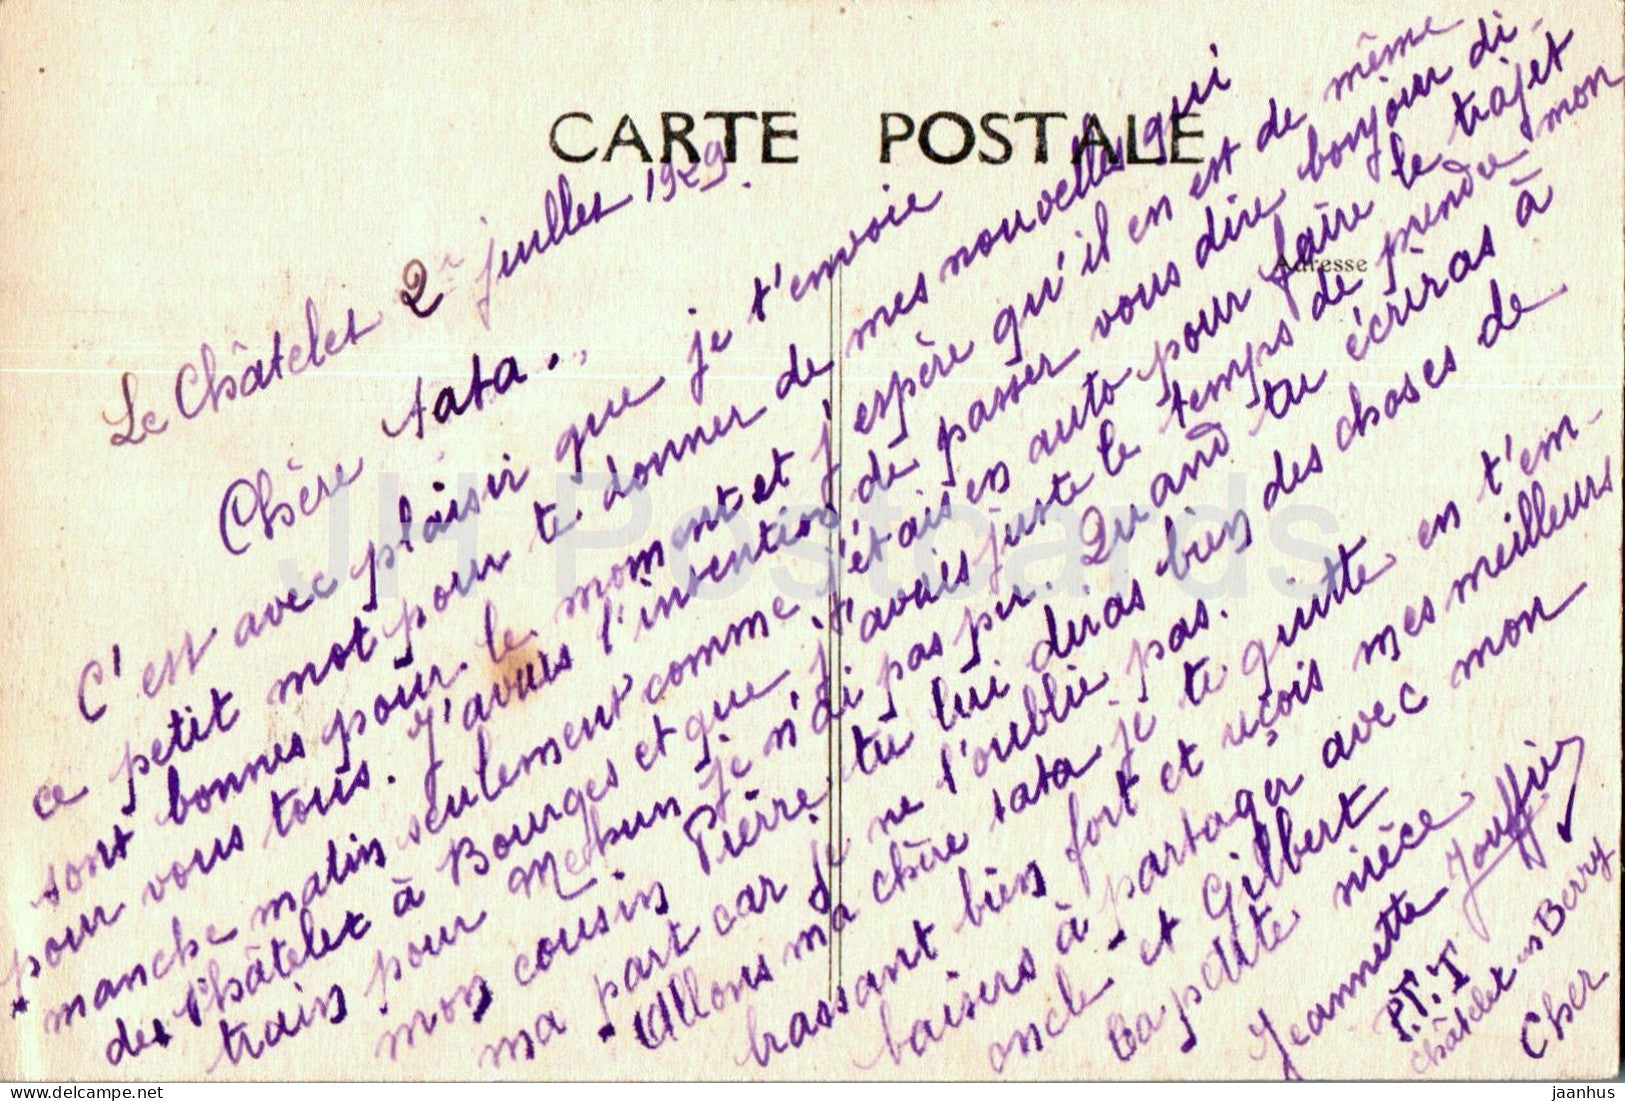 CARTE POSTALE
Adresse
Le Châtelet 2 juillet 1929.
Chère tata..,
C'est avec plaisir que je t'envoie
ce petit mot pour te donner de mes nouvelles qui
sont bonnes pour le moment et j'espère qu'il en est de même
pour vous tous. J'avais l'intention de passer vous dire bonjour di-
manche matin seulement comme j'étais en auto pour faire le trajet
de Châtelet à Bourges et que j'avais juste le temps de prendre mon
train pour Mehun je n'ai pas pu. Quand tu écriras à
mon cousin Pierre tu lui diras bien des choses de
ma part car je ne l'oublie pas.
Allons ma chère tata je te quitte en t'em-
brassant bien fort et reçois mes meilleurs
baisers à partager avec mon
oncle et Gilbert
Ta petite nièce
Jeannette
P.T.T
Châtelet en Berry
Cher
JH Postcards
www.delcampe.net
jaanhus